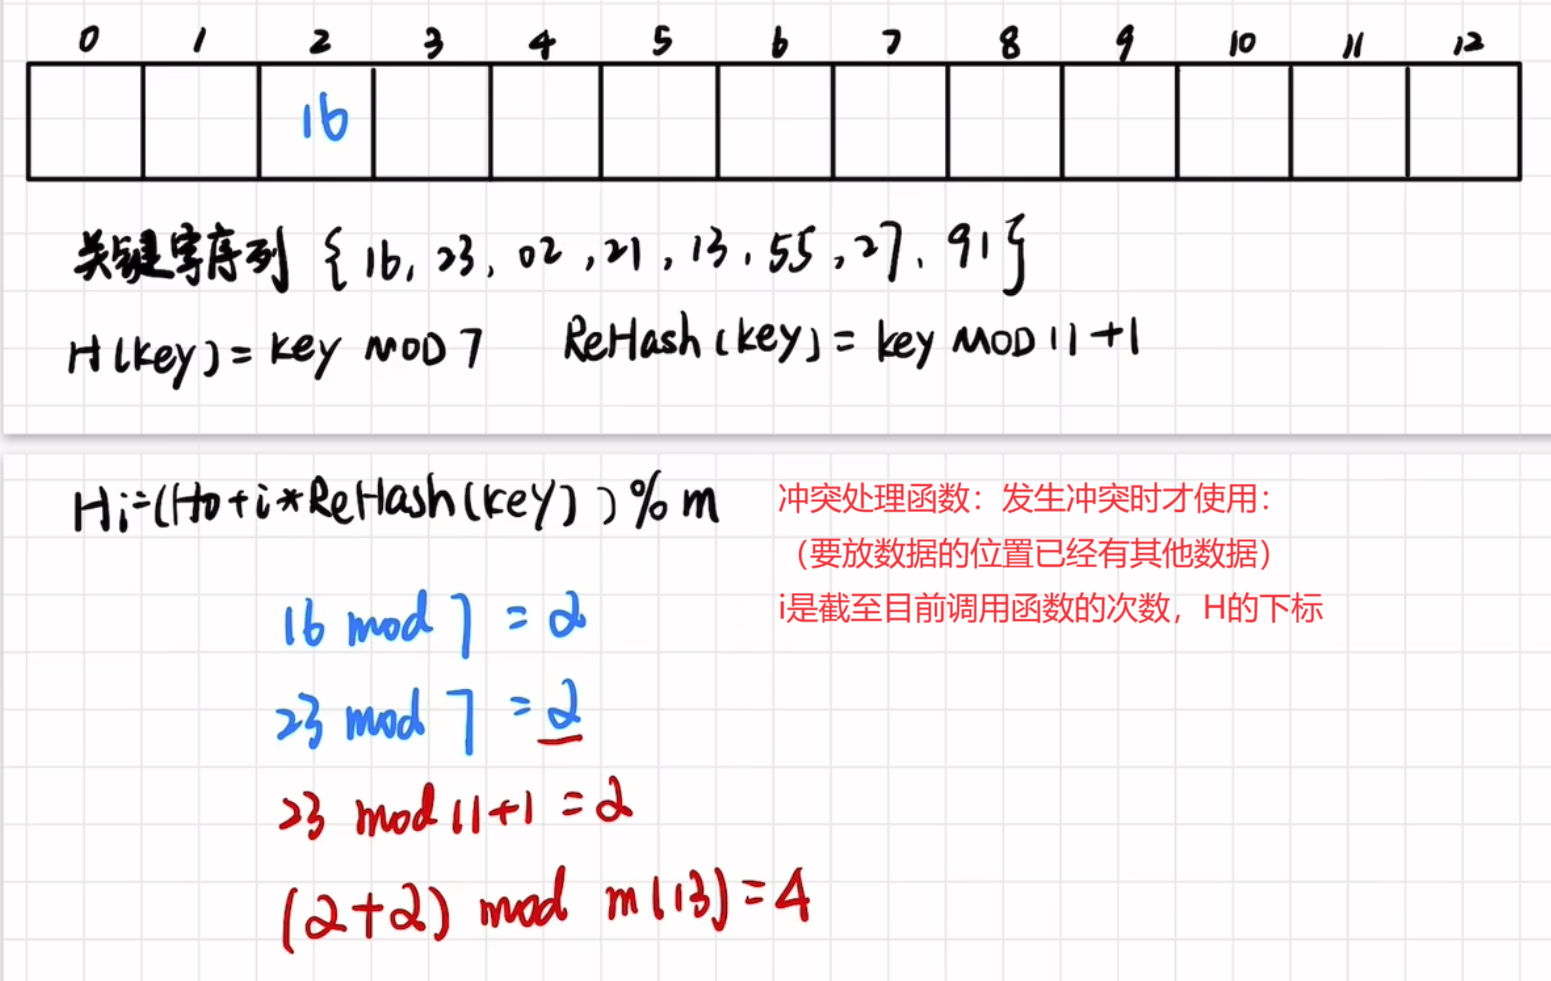 0 1 2 3 4 5 6 7 8 9 10 11 12
16
关键字序列 {16, 23, 02, 21, 13, 55, 27, 91}
H(key) = key MOD 7 ReHash(key) = key MOD 11 + 1
Hi=(H0+i*ReHash(key))%m
冲突处理函数：发生冲突时才使用：
（要放数据的位置已经有其他数据）
i是截至目前调用函数的次数，H的下标
16 mod 7 = 2
23 mod 7 = 2
23 mod 11+1 = 2
(2+2) mod m(13) = 4